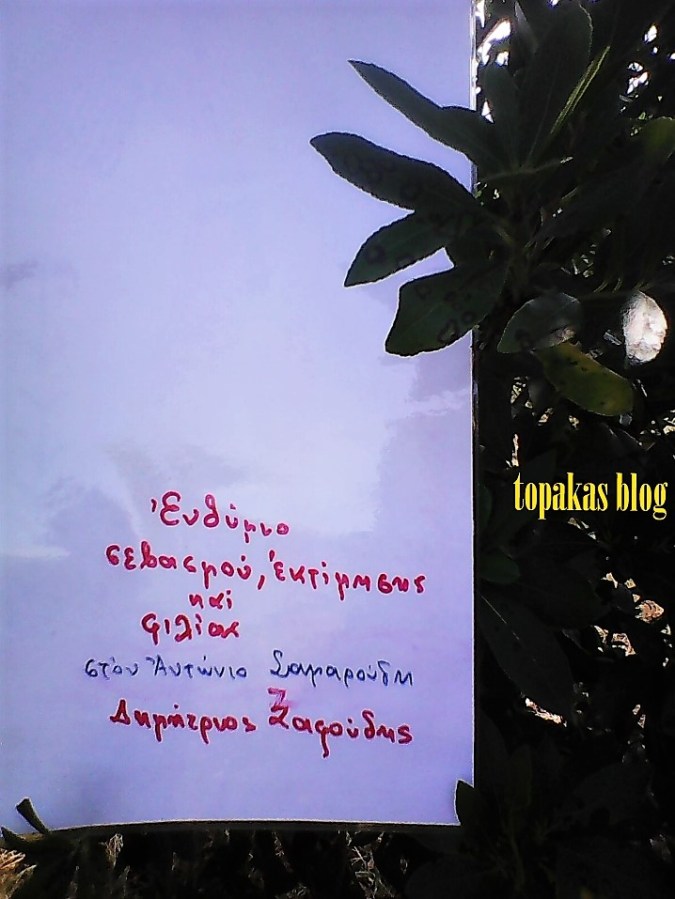 Ἐνθύμιο
σεβασμού, ἐκτίμησης
καί
φιλίας
στόν Ἀντώνιο Σαμαρούδη
Δημήτριος Σαφούδης
topakas blog